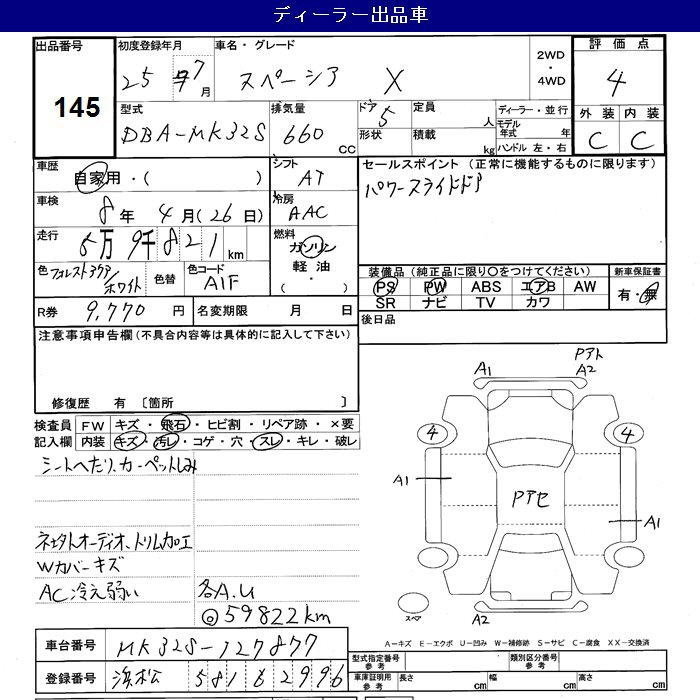 ディーラー出品車
出品番号 145
初度登録年月 25年7月
車名・グレード スペーシア X
2WD・4WD
評価点 4
外装 C 内装 C
型式 DBA-MK32S
排気量 660 cc
ドア 5 形状
定員 人 積載 kg
ディーラー・並行
モデル年式 年
ハンドル 左・右
車歴 自家用・( )
シフト AT
車検 8年4月(26日)
冷房 AAC
走行 5万9千821km
燃料 ガソリン 軽油 ( ・ )
色 フォレストアクア/ホワイト 色替 色コード A1F
R券 9,770円 名変期限 月 日
セールスポイント(正常に機能するものに限ります)
パワースライドドア
装備品(純正品に限り○をつけてください) 新車保証書
PS PW ABS エアB AW 有・無
SR ナビ TV カワ
後日品
注意事項申告欄(不具合内容等は具体的に記入して下さい)
修復歴 有 〔箇所 〕
検査員 FW キズ・飛石・ヒビ割・リペア跡・×要
記入欄 内装 キズ・汚レ・コゲ・穴・スレ・キレ・破レ
シートへたり、カーペットしみ
ネェタトオーディオ、トリム加工
Wカバーキズ
AC冷え弱い 各A.U
◎59822km
A1 Pアト A2
4 4
A1 Pアセ A1
スペア A2
A-キズ E-エクボ U-凹み W-補修跡 S-サビ C-腐食 XX-交換済
車台番号 MK32S-127877
登録番号 浜松 581 を 2996
型式指定番号 参考 類別区分番号 参考
車庫証明用 参考 長さ cm 幅 cm 高さ cm